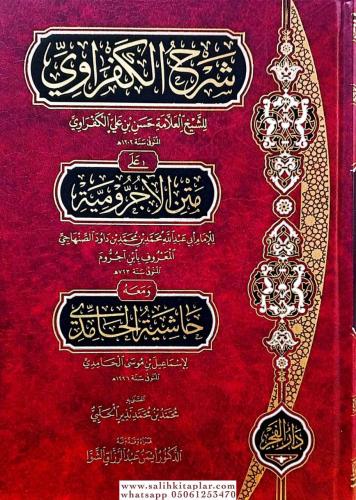 شرح الكفراوي
للشيخ العلامة حسن بن علي الكفراوي
المتوفى سنة ١٢٠٢هـ
على
متن الآجرومية
للإمام أبي عبد الله محمد بن محمد بن داود الصنهاجي
المعروف بابن آجروم
المتوفى سنة ٧٢٣هـ
ومعه
حاشية الحامدي
لإسماعيل بن موسى الحامدي
المتوفى سنة ١٣١٦هـ
اعتنى به
محمد بن محمد نذير الحلبي
الدكتور أيمن عبد الرزاق الشوا
دار الفجر
www.salihkitaplar.com
whatsapp 05061253470